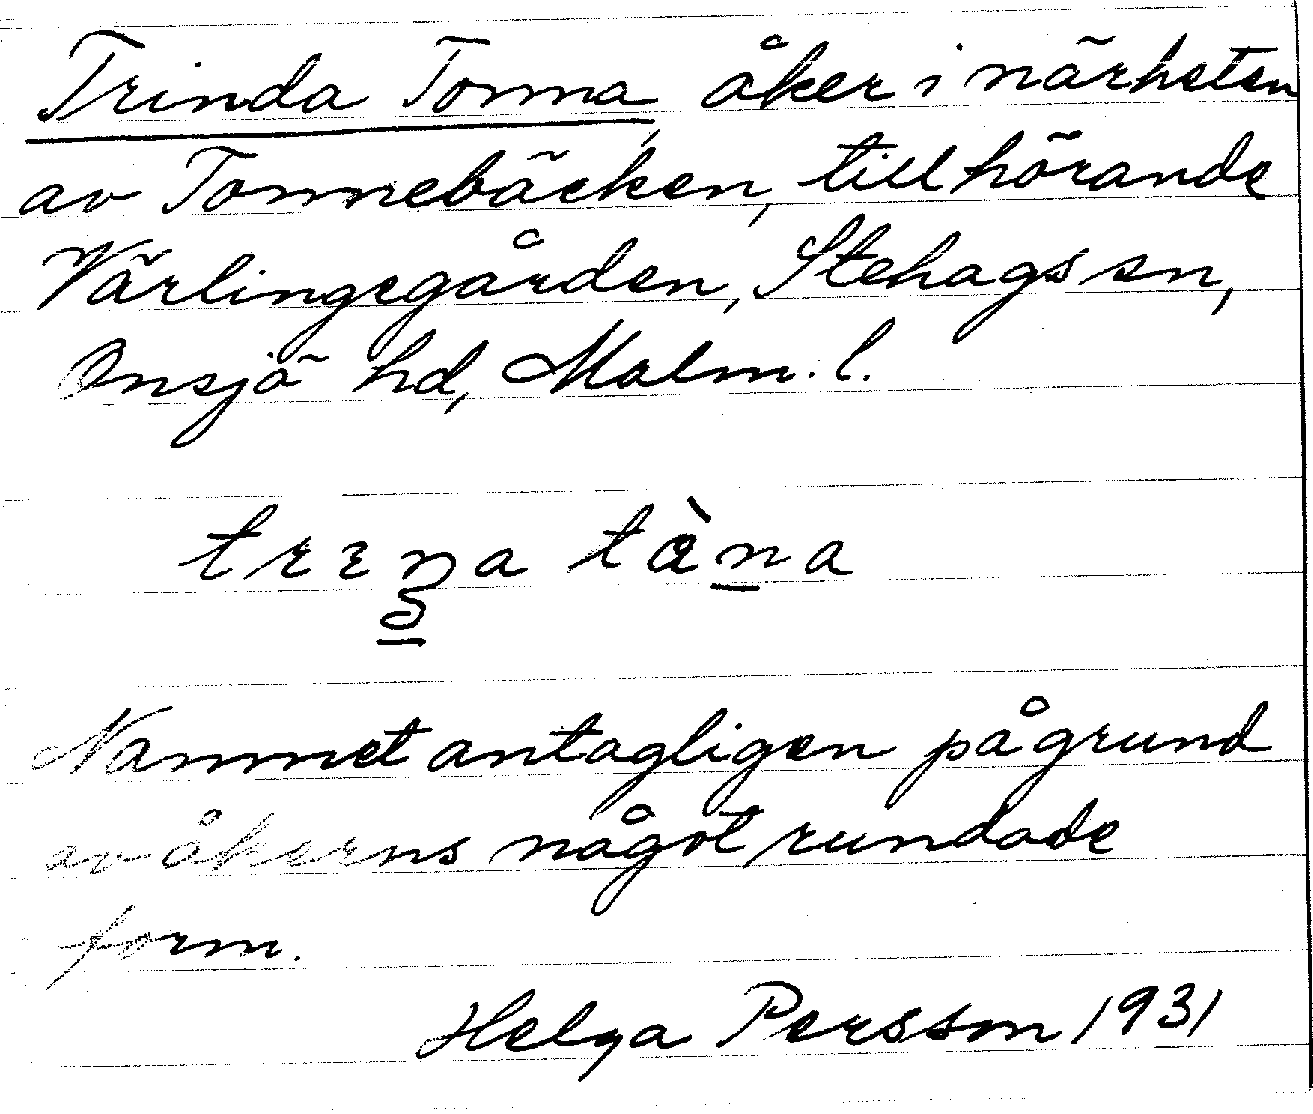 Trinda Tonna, åker i närheten
av Tonnebäcken, tillhörande
Värlingegården, Stehags sn,
Onsjö hd, Malm. l.
Namnet antagligen pågrund
av åkerns något rundade
form.
Helga Persson 1931